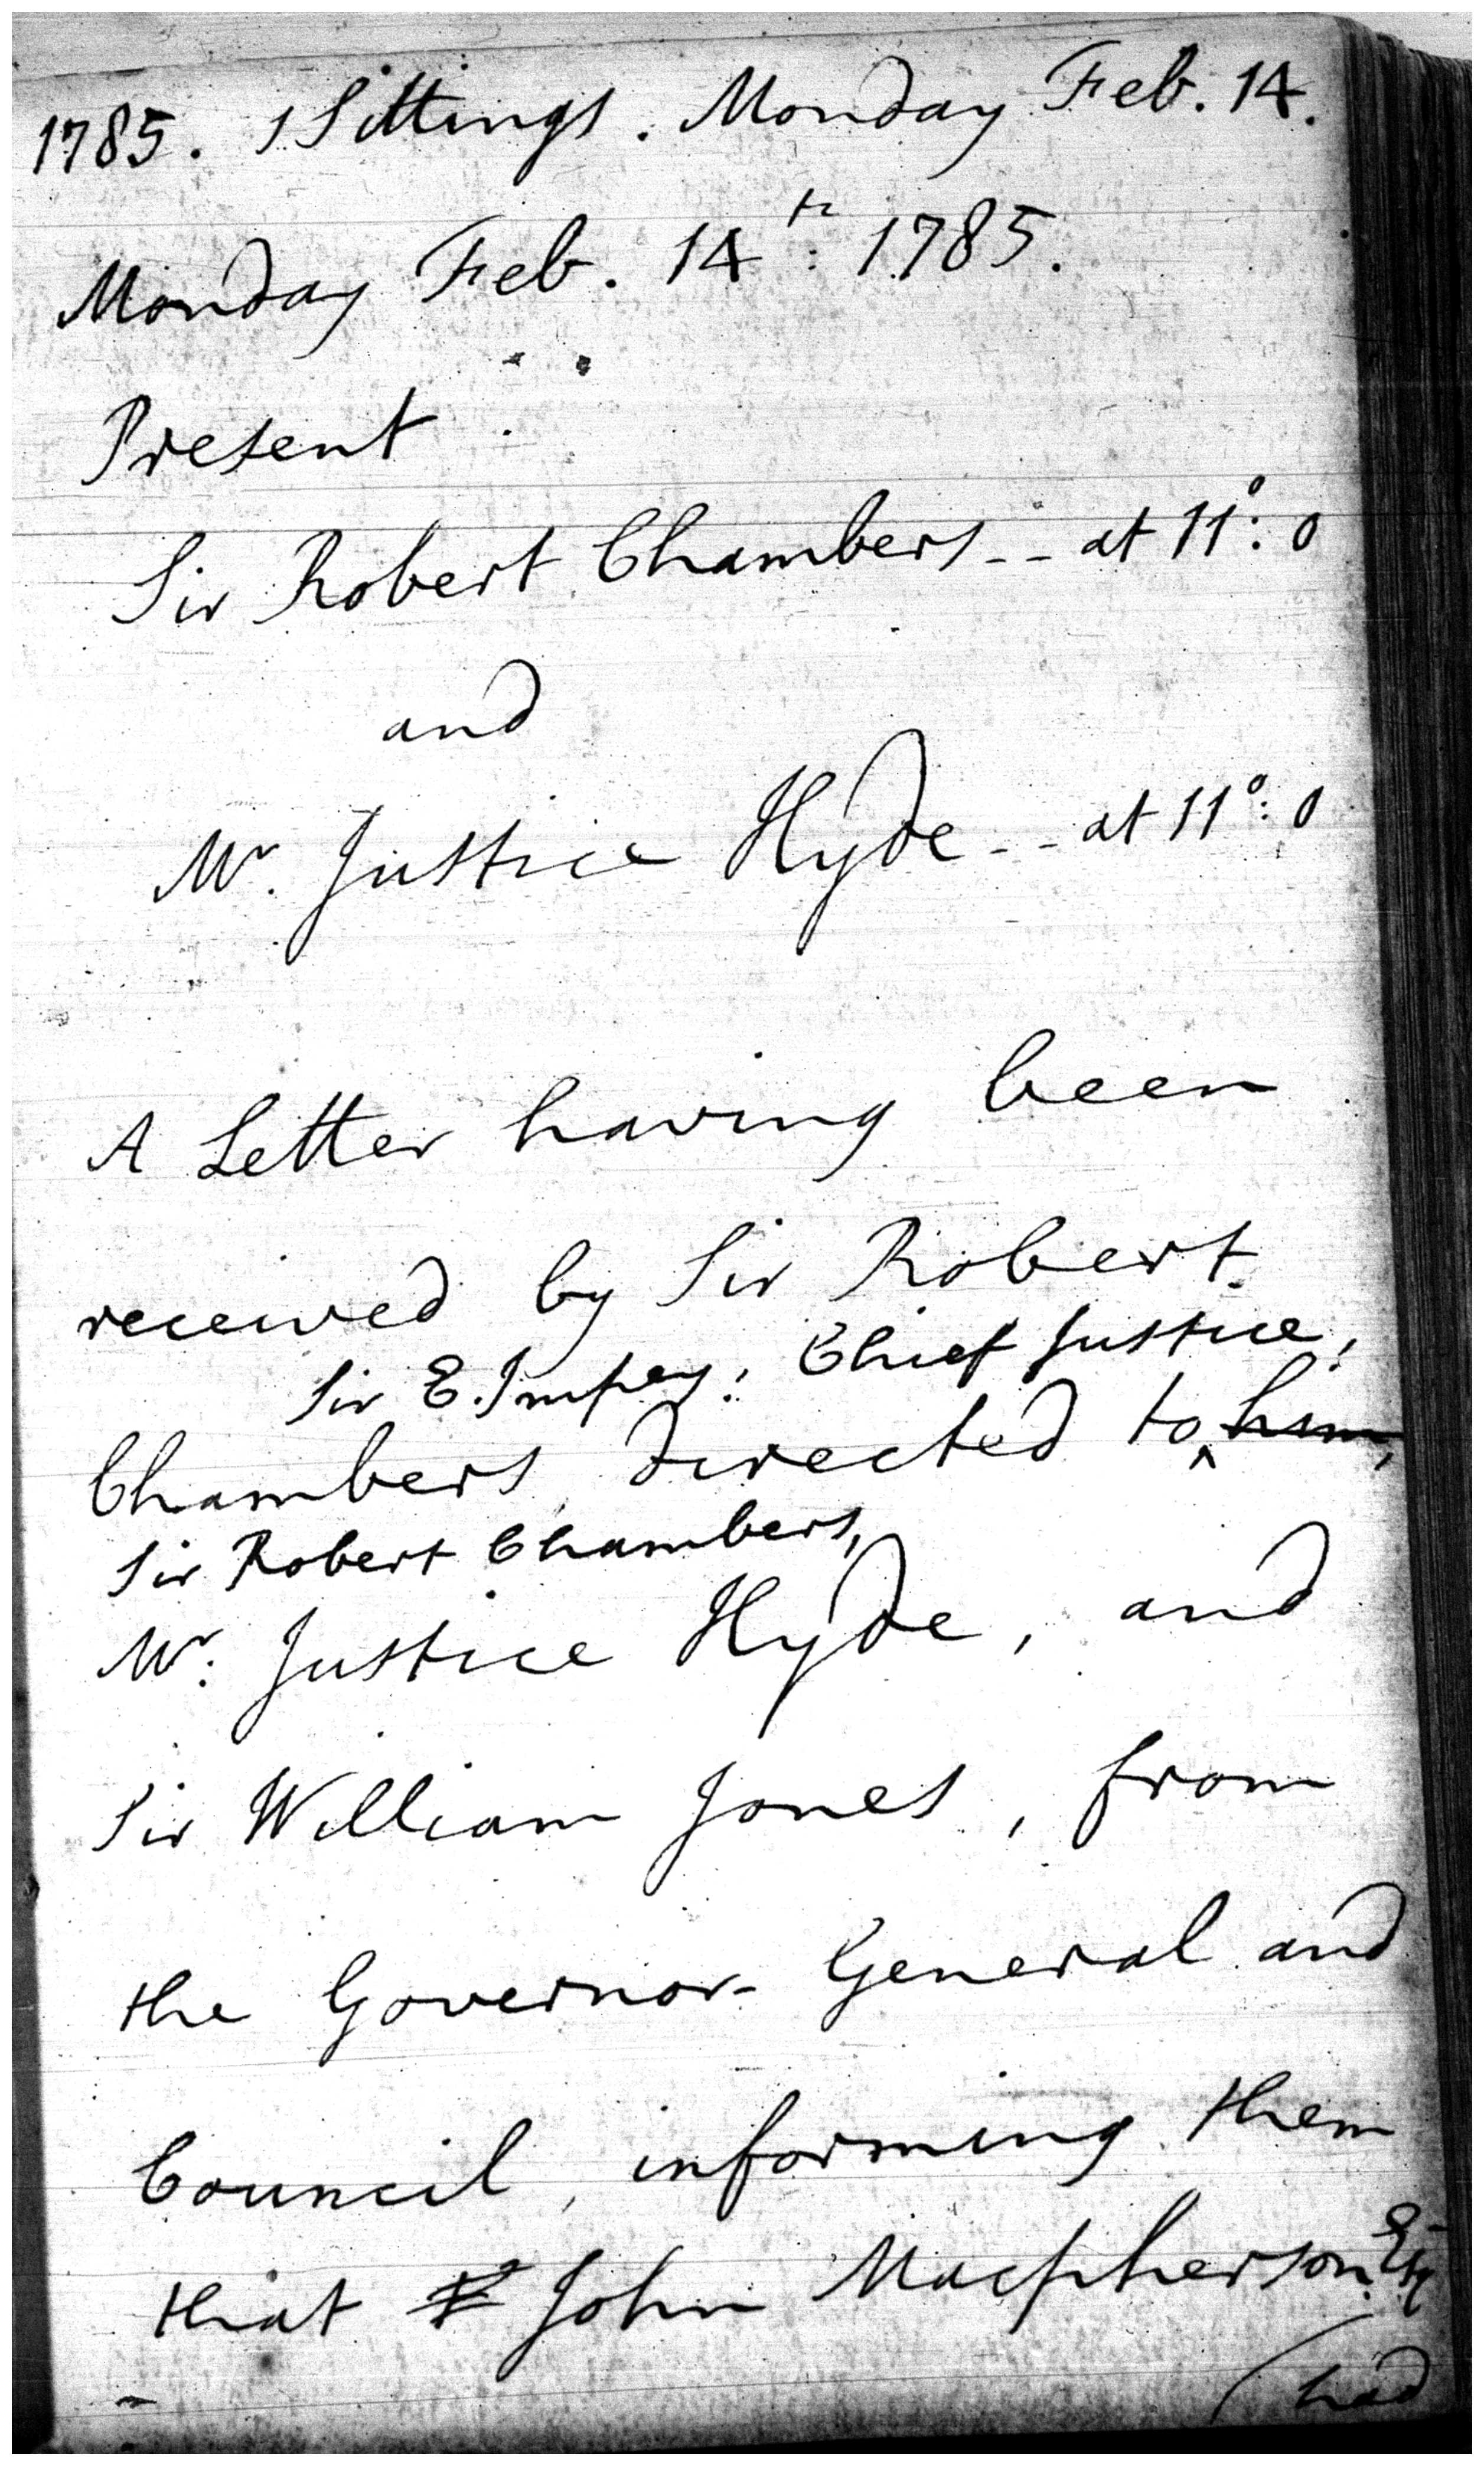 1785. Sittings. Monday Feb. 14.
Monday Feb. 14th: 1785.
Present
Sir Robert Chambers -- at 11°: 0
and
Mr. Justice Hyde -- at 11°: 0
A Letter having been
received by Sir Robert
Sir E. Impey: Chief Justice,
Chambers, directed to ^ him,
Sir Robert Chambers,
Mr: Justice Hyde, and
Sir William Jones, from
the Governor-General and
Council, informing them
that John Macpherson Esq
(had